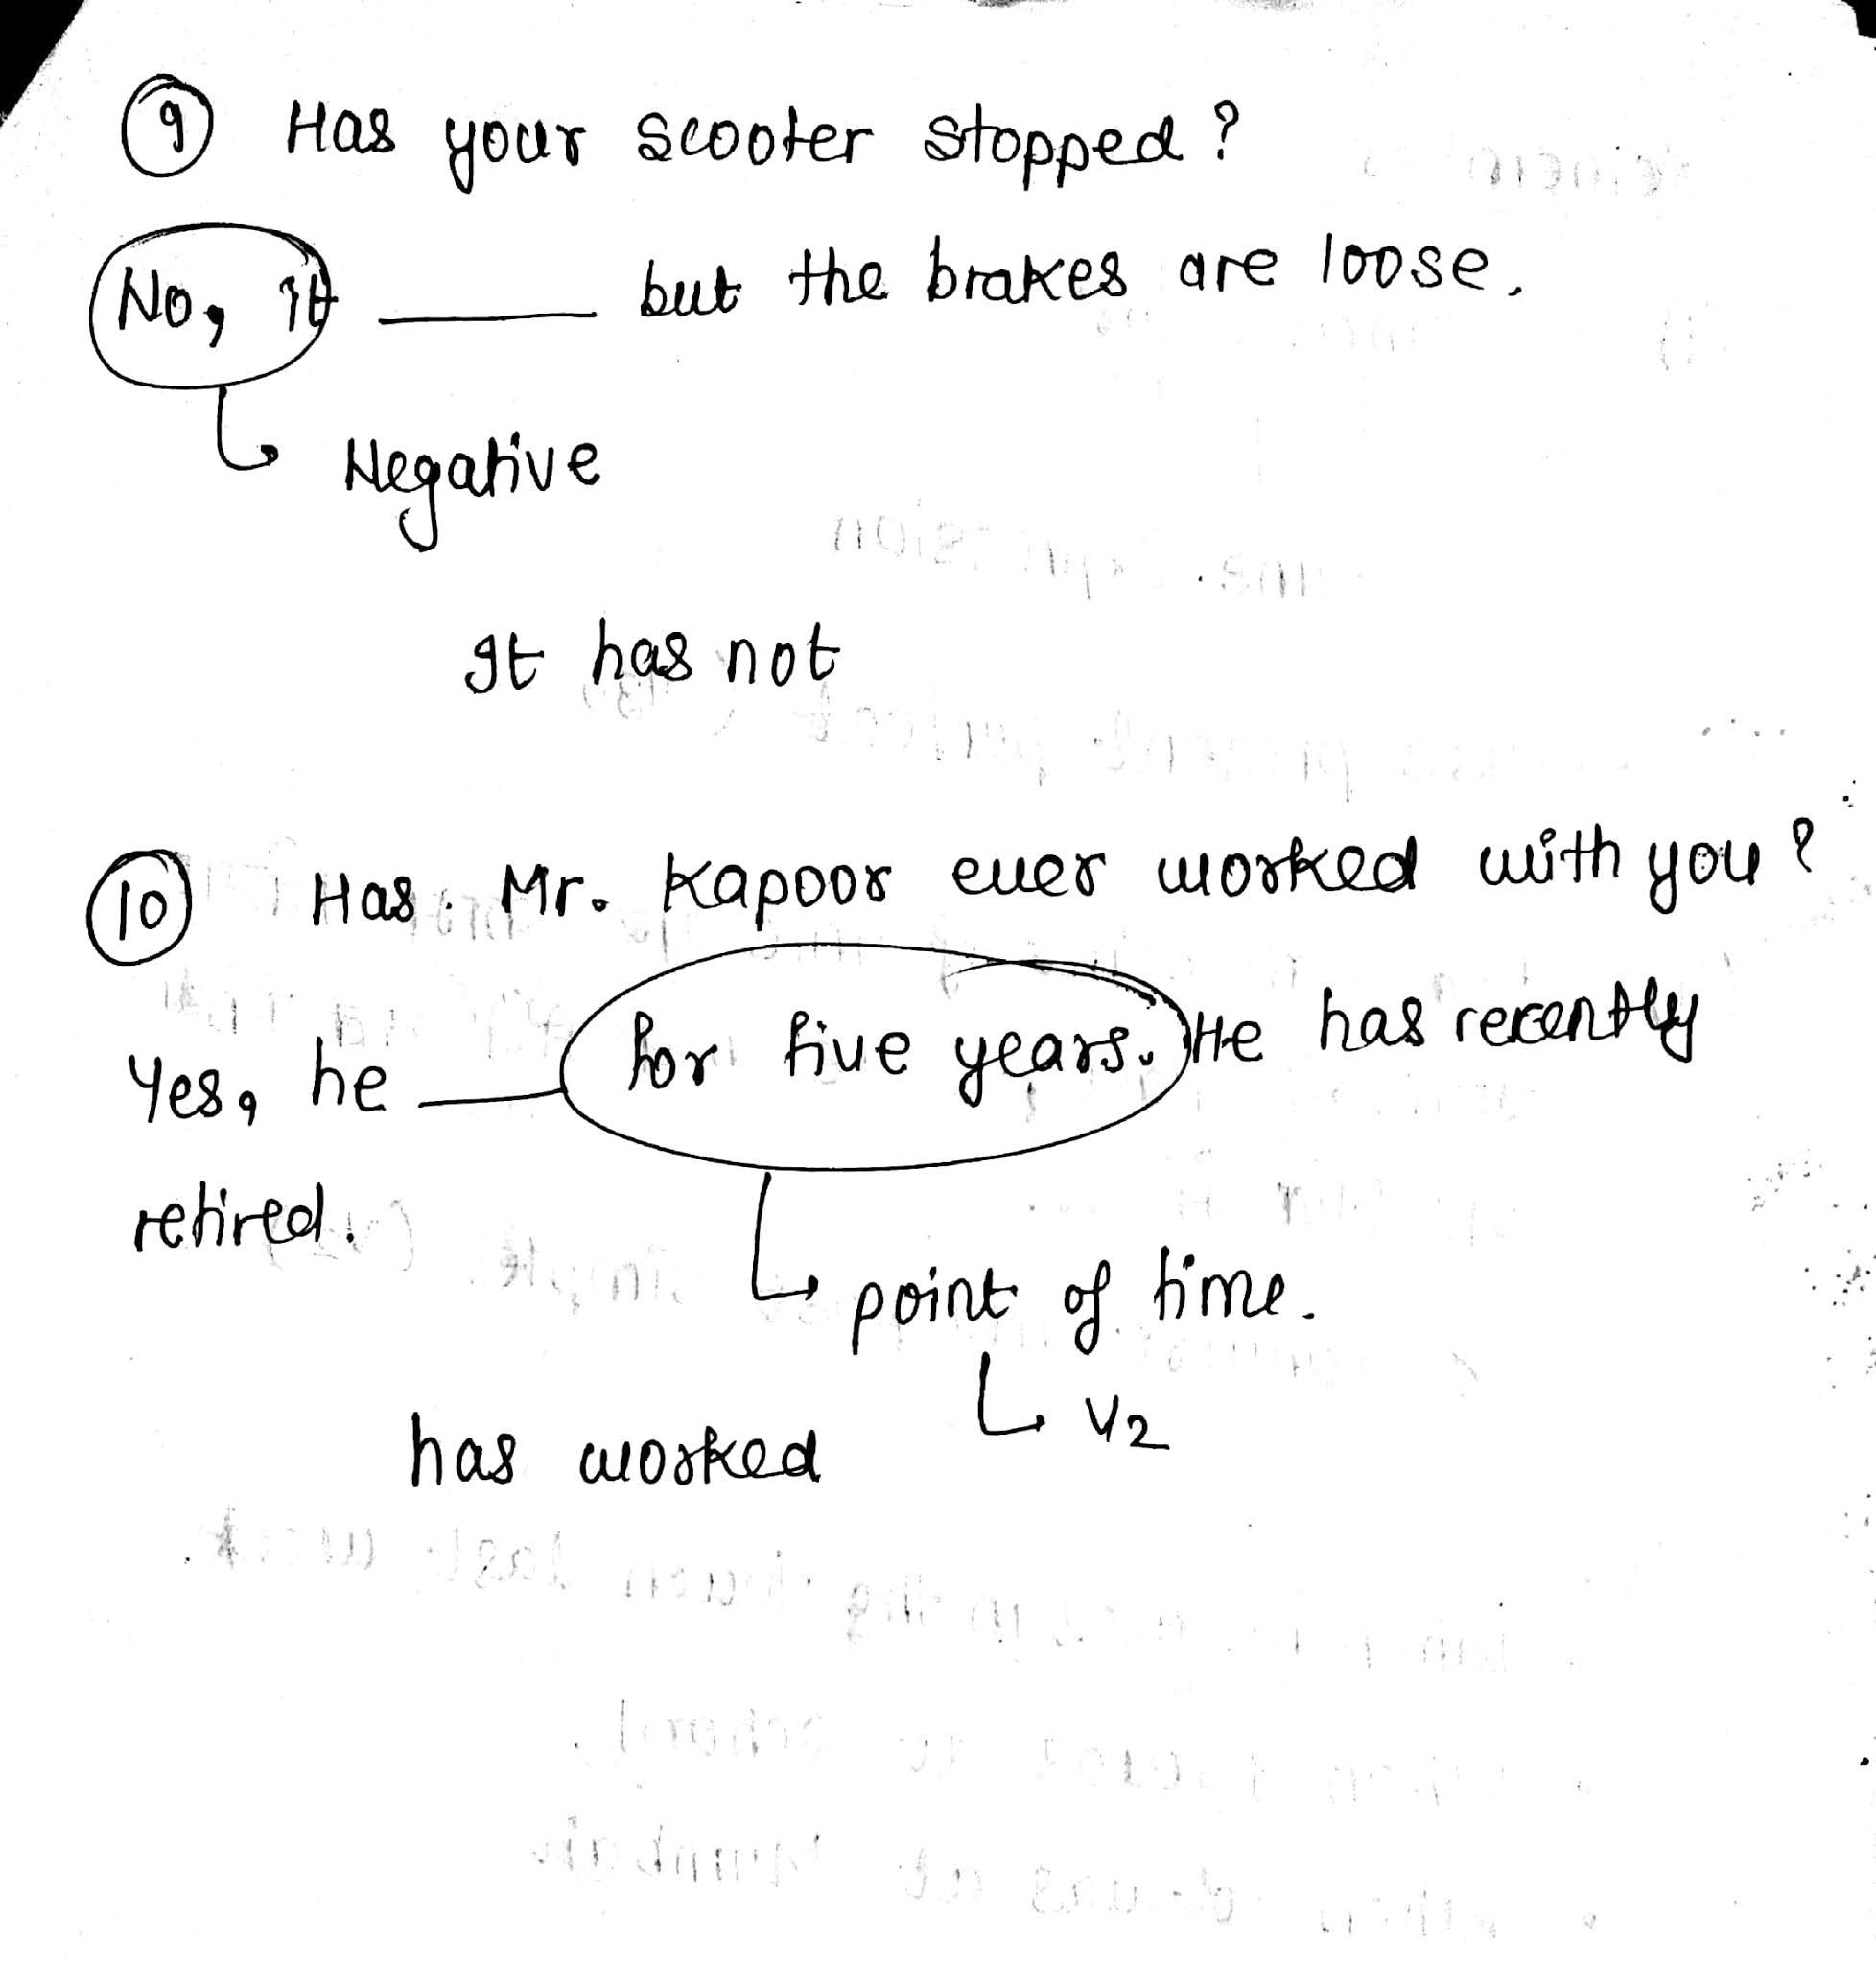 9 Has your scooter stopped?
No, it ______ but the brakes are loose.
Negative
It has not
10 Has Mr. Kapoor ever worked with you?
Yes, he ______ for five years. He has recently
retired.
point of time.
V2
has worked